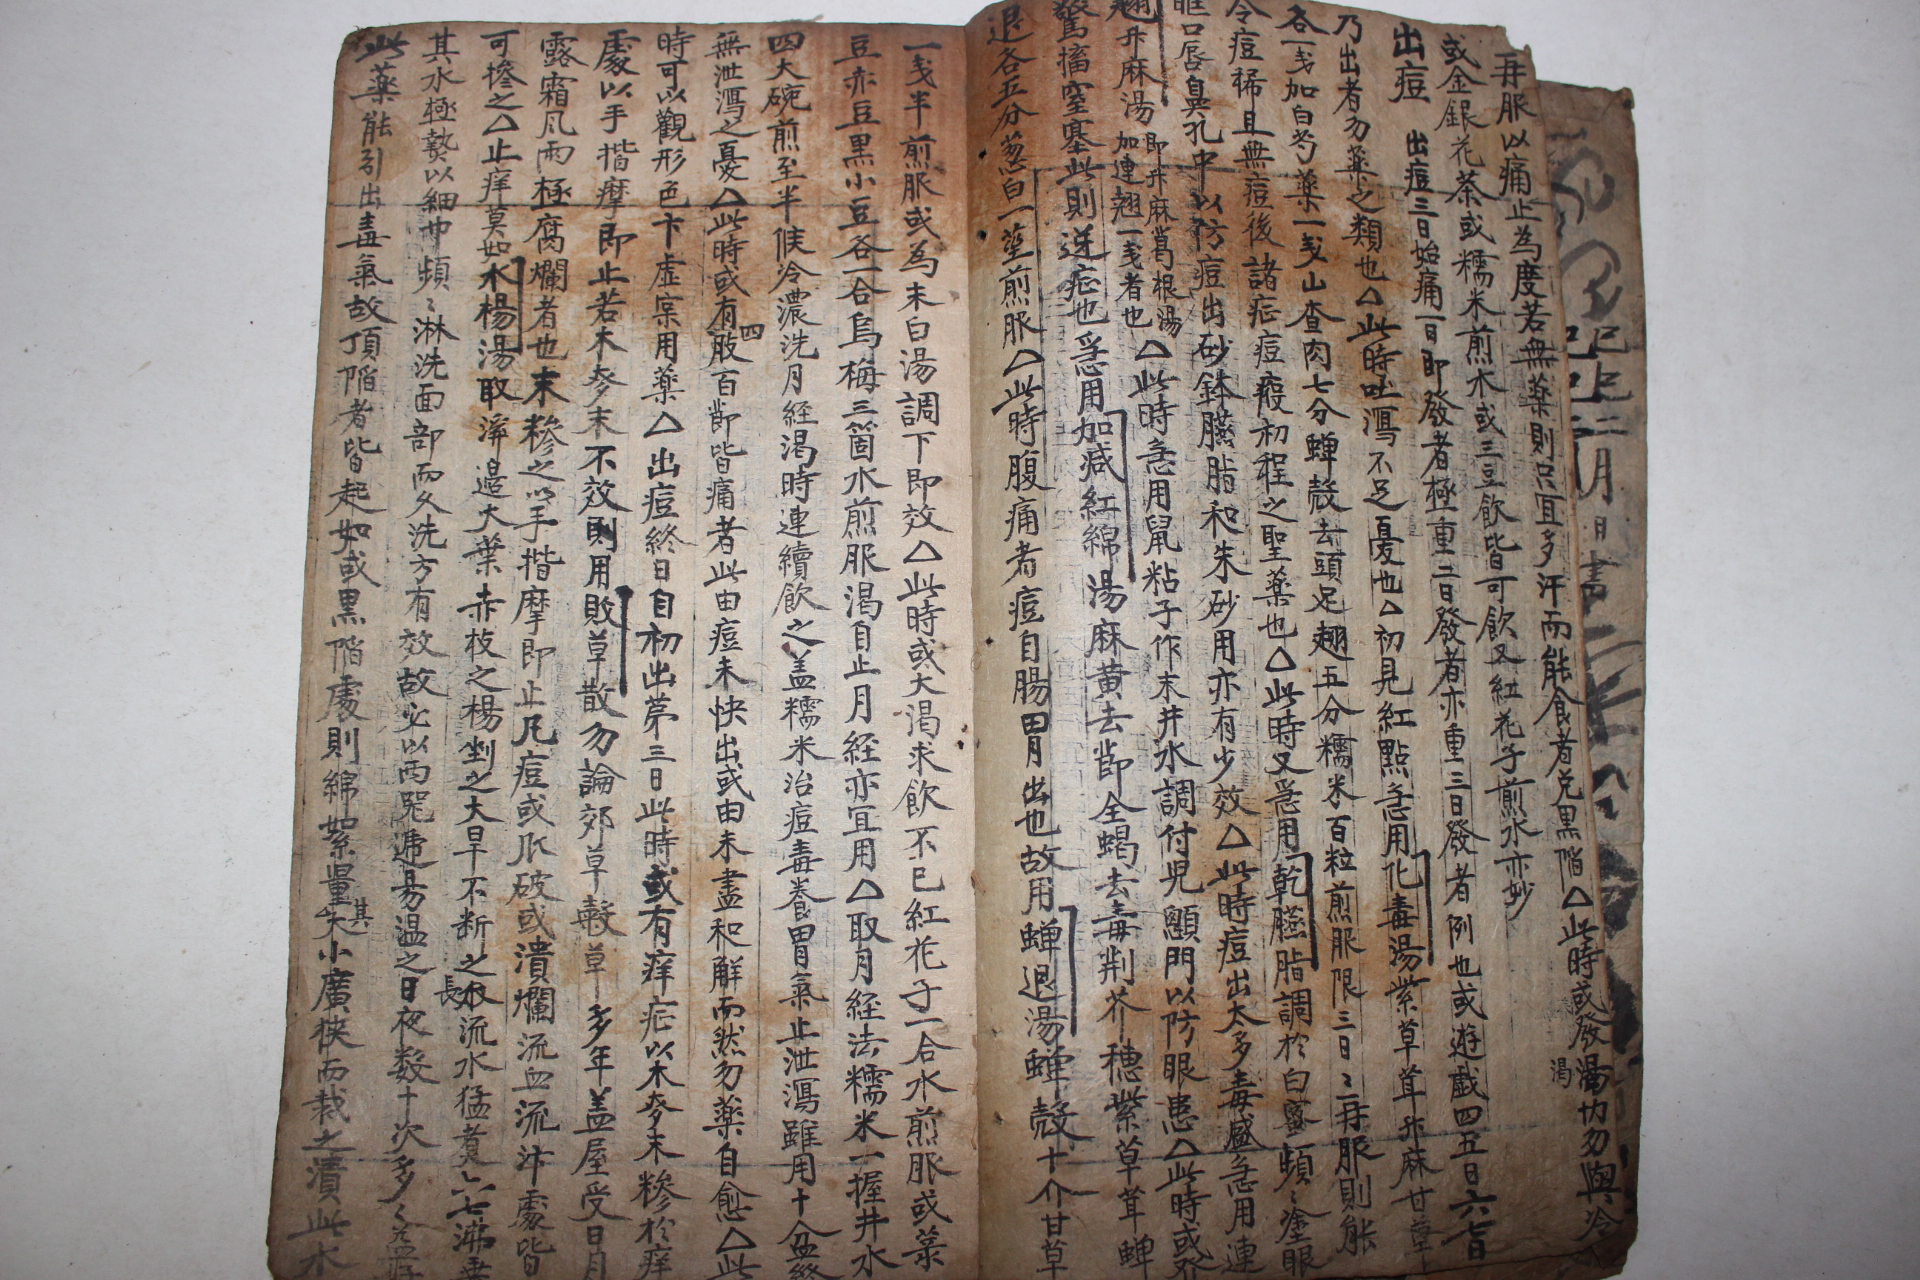 再服以痛止為度若無藥則只宜多汗而能食者兑黑陷△此時或發渴切勿與冷
或金銀花茶或糯米煎水或三豆飲皆可飲又紅花子煎水亦妙
出痘 出痘三日始痛一日即發者極重二日發者亦重三日發者例也或遊戲四五日六七日
乃出者勿藥之類也△此時吐瀉不足憂也△初見紅點急用化毒湯紫草茸升麻甘草
各一戔加白芍藥一戔山查肉七分蟬殼去頭足翅五分糯米百粒煎服限三日ミ再服則能
令痘稀且無痘後諸疾痘疫初程之聖藥也△此時又急用乾臙脂調於白蜜頻ミ塗眼
眶口唇鼻孔中以防痘出砂鉢臙脂和朱砂用亦有少效△此時痘出太多毒盛急用連
翹升麻湯即升麻葛根湯加連翹一戔者也△此時急用鼠粘子作末井水調付兒顖門以防眼患△此時或發
驚搐窒塞此則逆症也急用加減紅綿湯麻黃去節全蝎去毒荆芥穗紫草茸蟬
退各五分葱白一莖煎服△此時腹痛者痘自腸胃出也故用蟬退湯蟬殼十介甘草
一戔半煎服或為末白湯調下即效△此時或大渴求飲不已紅花子一合水煎服或菉
豆赤豆黑小豆各一合烏梅三箇水煎服渴自止月経亦宜用△取月経法糯米一握井水
四大碗煎至半候冷濃洗月経渴時連續飲之盖糯米治痘毒養胃氣止泄瀉雖用十盆終
無泄瀉之憂△此時或有四肢百節皆痛者此由痘未快出或由未盡和解而然勿藥自愈△此
時可以觀形色卞虛宲用藥△出痘終日自初出苐三日此時或有痒症以木麥末糝於痒
處以手揩摩即止若木麥末不效則用敗草散勿論郊草轂草多年盖屋受日月
露霜風雨極腐爛者也末糝之以手揩摩即止凡痘或爪破或潰爛流血流汁處皆
可糝之△止痒莫如水楊湯取澤邉大葉赤枝之楊剉之大旱不断之長流水猛煑六七沸
其水極熱以細巾頻ミ淋洗面部而久洗方有效故必以两器遞易温之日夜数十次多ミ益好
此藥能引出毒氣故頂陷者皆起如或黑陷處則綿絮量其大小廣狹而裁之漬此水